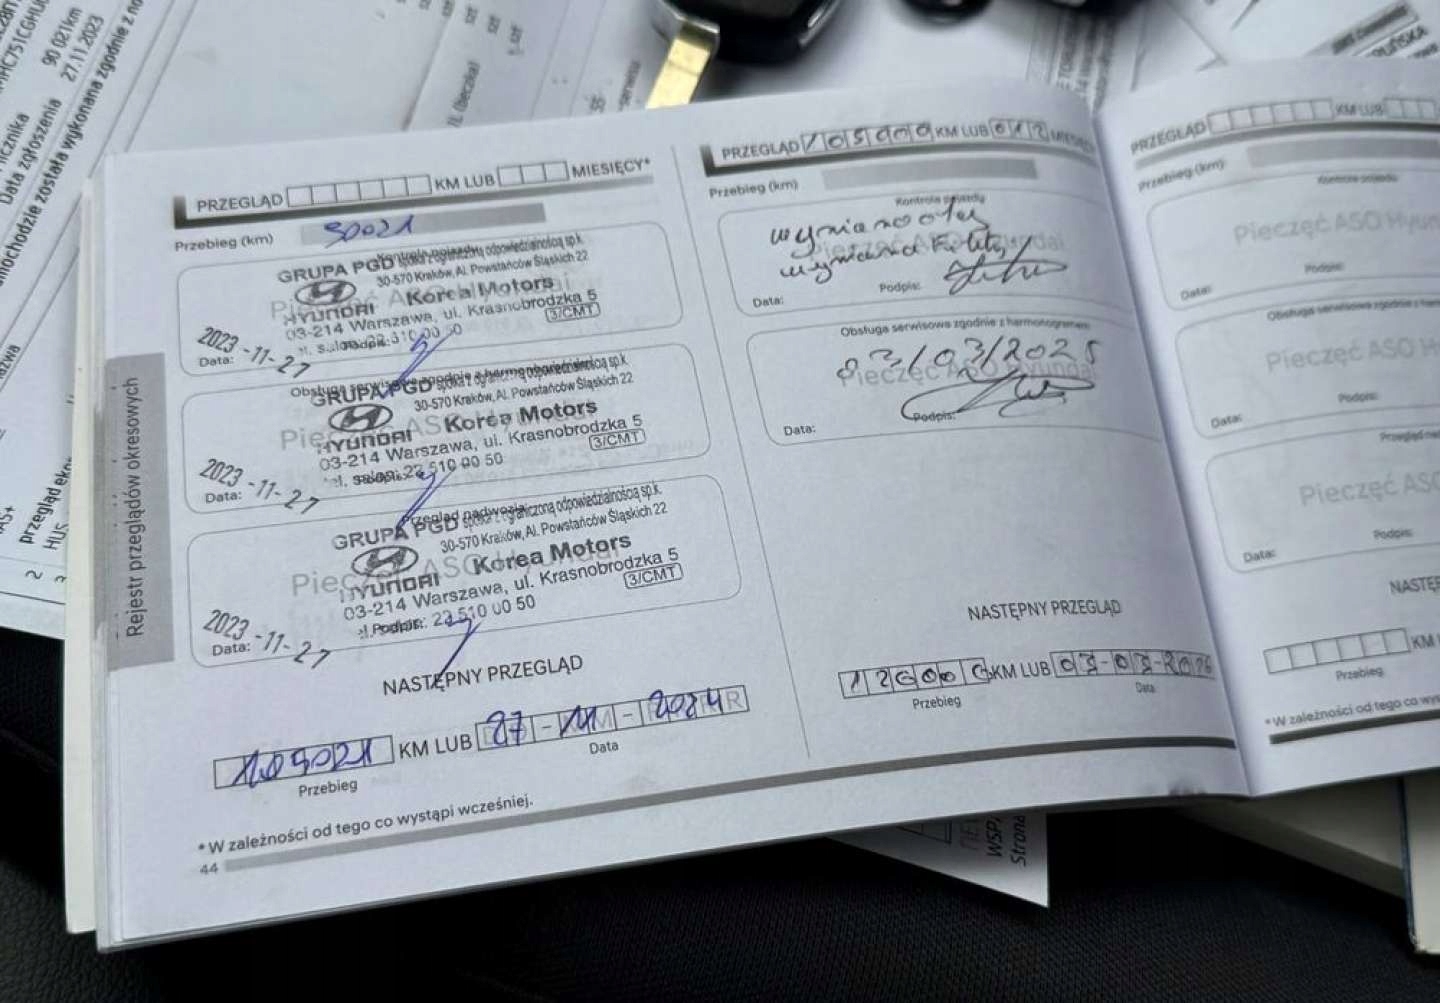 90 021km
27.11.2023
Data zgłoszenia
Rejestr przeglądów okresowych
PRZEGLĄD KM LUB MIESIĘCY*
Przebieg (km) 90021
GRUPA PGD spółka z ograniczoną odpowiedzialnością sp.k.
30-570 Kraków, Al. Powstańców Śląskich 22
HYUNDAI Korea Motors
03-214 Warszawa, ul. Krasnobrodzka 5
tel. salon: 22 510 00 50 3/CMT
Data: 2023 -11- 27
Obsługa serwisowa zgodnie z harmonogramem
GRUPA PGD spółka z ograniczoną odpowiedzialnością sp.k.
30-570 Kraków, Al. Powstańców Śląskich 22
HYUNDAI Korea Motors
03-214 Warszawa, ul. Krasnobrodzka 5
tel. salon: 22 510 00 50 3/CMT
Data: 2023 -11- 27
Przegląd nadwozia
GRUPA PGD spółka z ograniczoną odpowiedzialnością sp.k.
30-570 Kraków, Al. Powstańców Śląskich 22
HYUNDAI Korea Motors
03-214 Warszawa, ul. Krasnobrodzka 5
Podpis: 22 510 00 50 3/CMT
Data: 2023 -11- 27
NASTĘPNY PRZEGLĄD
105021 KM LUB 27-11-2024
Przebieg Data
* W zależności od tego co wystąpi wcześniej.
44
PRZEGLĄD 105000 KM LUB 012 MIESIĘCY
Przebieg (km)
Kontrola pojazdu
wymiana oleju
wymiana Filtry
Pieczęć ASO Hyundai
Data: Podpis:
Obsługa serwisowa zgodnie z harmonogramem
03/03/2025
Pieczęć ASO Hyundai
Data: Podpis:
NASTĘPNY PRZEGLĄD
120000 KM LUB 03-03-2026
Przebieg Data
PRZEGLĄD KM LUB
Przebieg (km)
Kontrola pojazdu
Pieczęć ASO Hyun
Data: Podpis:
Obsługa serwisowa zgodnie z harm
Pieczęć ASO H
Data: Podpis:
Pieczęć ASO
Data: Podpis:
NASTĘP
KM
Przebieg
* W zależności od tego co wys